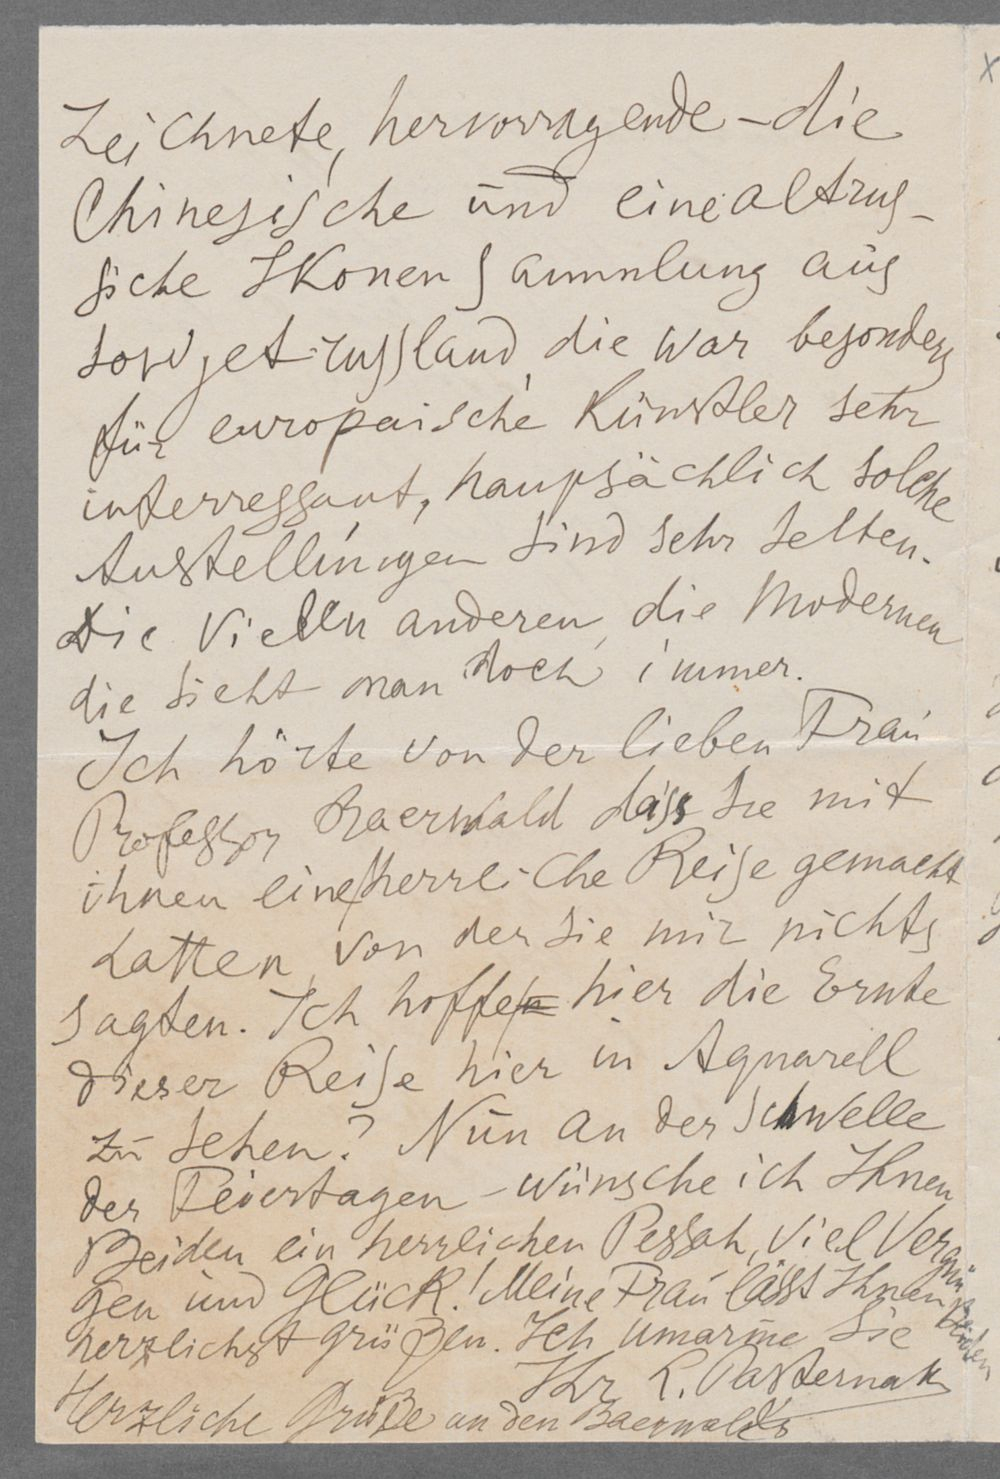 zeichnete, hervorragende – die
Chinesische und eine altrus-
sische Ikonen Sammlung aus
Sowjet-russland, die war besonders
für europaische Künstler sehr
interressant, haupsächlich solche
Austellungen sind sehr selten.
Die Vielen anderen, die Modernen
die sieht man doch immer.
Ich hörte von der lieben Frau
Professor Baerwald dass Sie mit
ihnen eine herrliche Reise gemacht
hatten, von der Sie mir nichts
sagten. Ich hoffe hier die Ernte
dieser Reise hier in Aquarell
zu sehen? Nun an der Schwelle
der Feiertagen – wünsche ich Ihnen
Beiden ein herrlichen Pessah, viel Vergnü
gen und Glück! Meine Frau lässt Ihnen Beiden
herzlichst grüßen. Ich umarme Sie
Ihr L. Pasternak
Herzliche Grüße an den Baerwald's